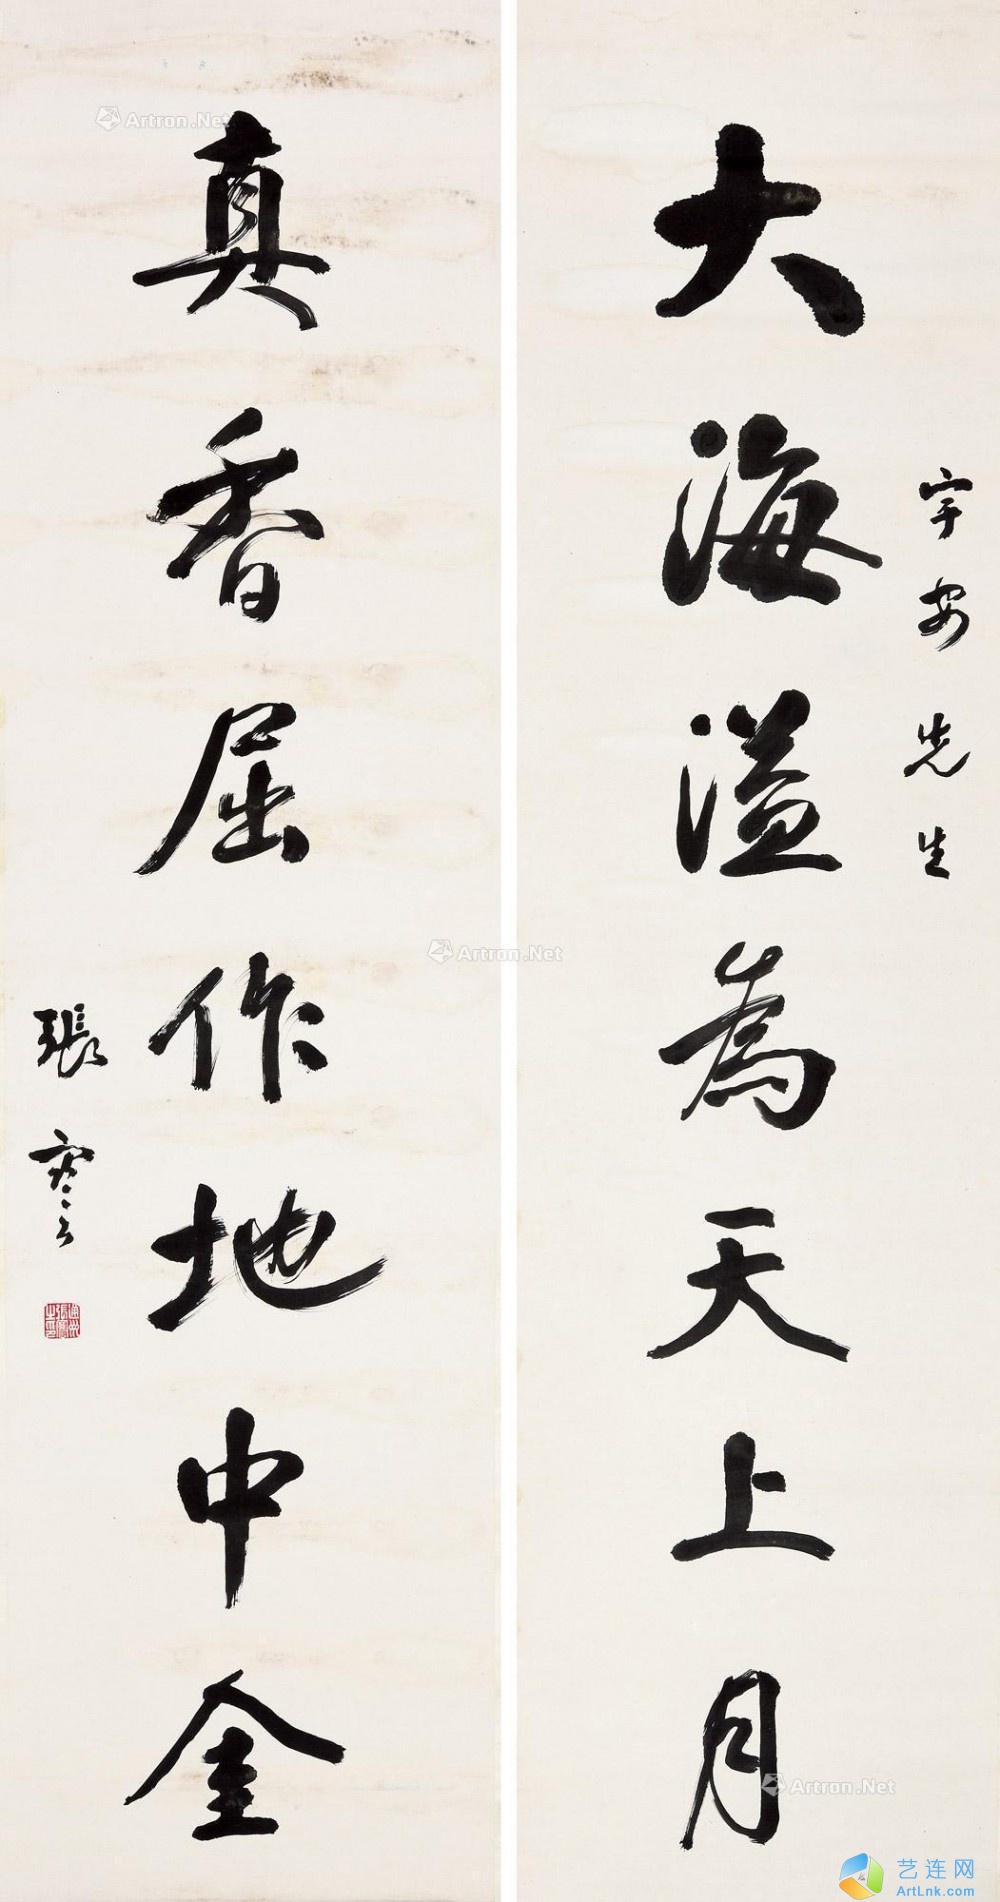 宇安先生
大海溢為天上月
真香屈作地中金
張謇
Artron.Net
Artron.Net
Artron.Net
艺连网
ArtLnk.com